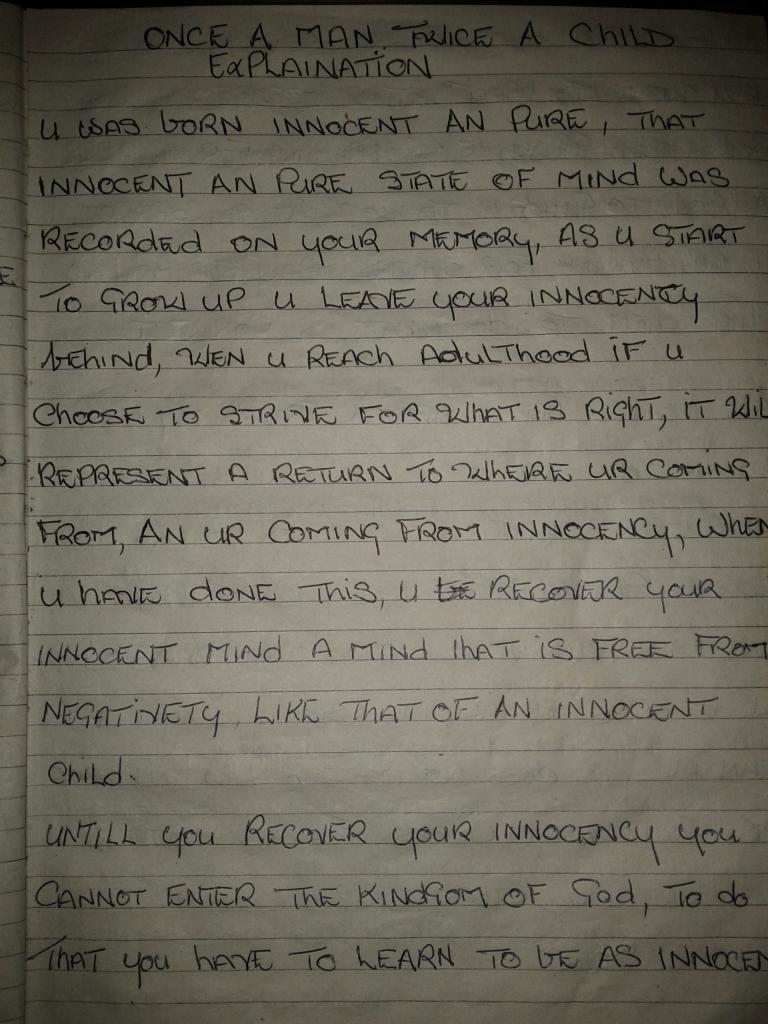 ONCE A MAN TWICE A CHILD
EXPLAINATION
U WAS BORN INNOCENT AN PURE, THAT
INNOCENT AN PURE STATE OF MIND WAS
RECORDED ON YOUR MEMORY, AS U START
TO GROW UP U LEAVE YOUR INNOCENCY
BEHIND, WEN U REACH ADULTHOOD IF U
CHOOSE TO STRIVE FOR WHAT IS RIGHT, IT WIL
REPRESENT A RETURN TO WHERE UR COMING
FROM, AN UR COMING FROM INNOCENCY, WHEN
U HAVE DONE THIS, U RECOVER YOUR
INNOCENT MIND A MIND THAT IS FREE FROM
NEGATIVETY LIKE THAT OF AN INNOCENT
CHILD.
UNTILL YOU RECOVER YOUR INNOCENCY YOU
CANNOT ENTER THE KINDGOM OF GOD, TO DO
THAT YOU HAVE TO LEARN TO BE AS INNOCEN